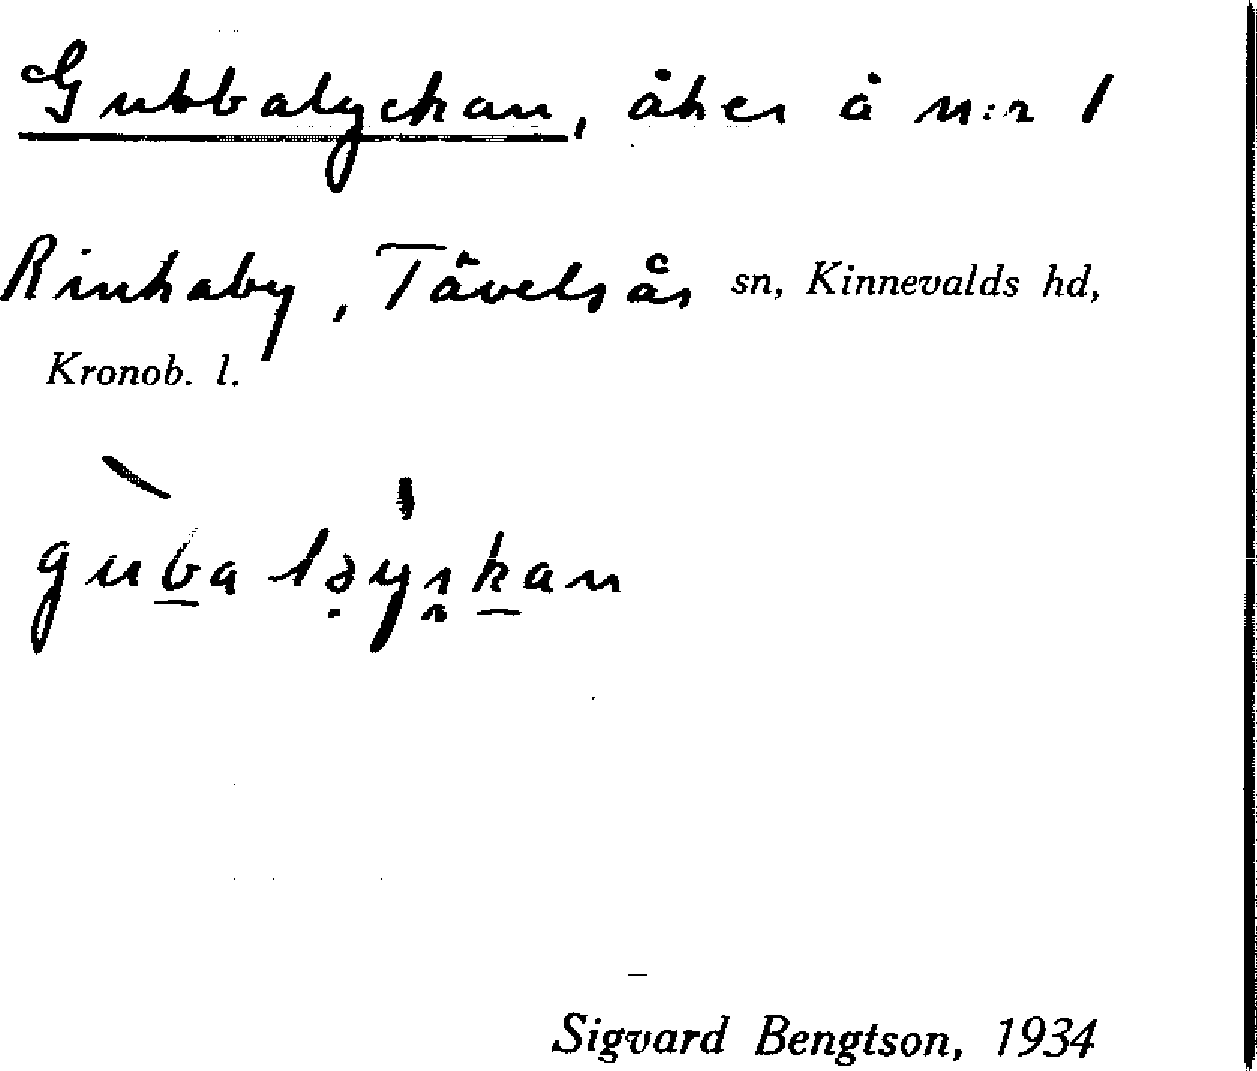 Gubbalyckan, åker å n:r 1
Rinkaby, Tävelsås sn, Kinnevalds hd,
Kronob. l.
Sigvard Bengtson, 1934